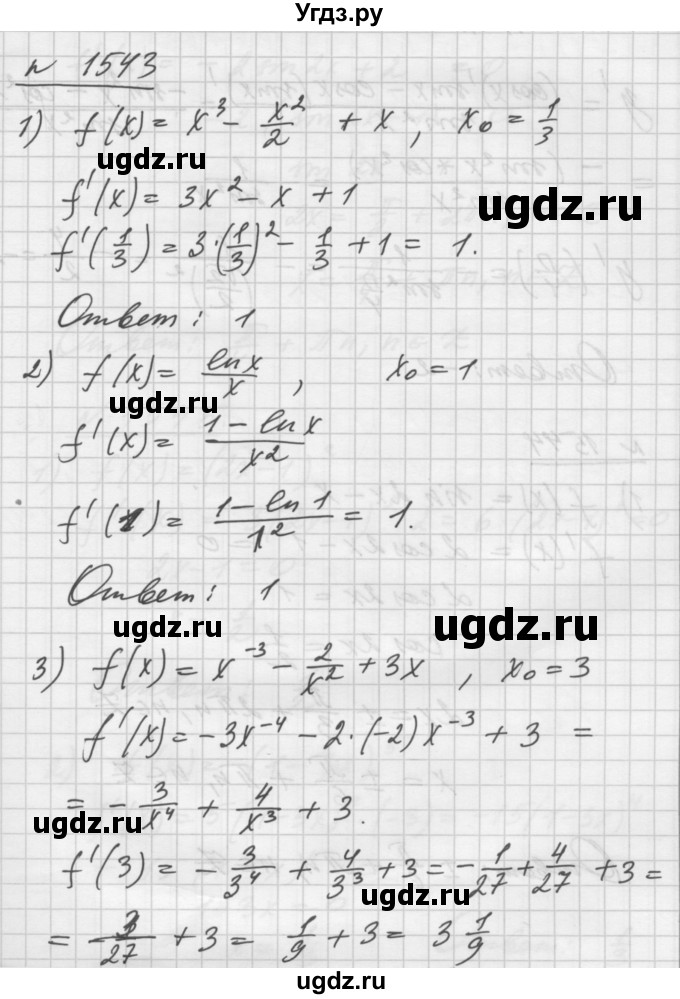 Угдз.ру
N 1543
1) f(x) = x³ - x²/2 + x , x₀ = 1/3
ugdz.ru
f'(x) = 3x² - x + 1
ugdz.ru
f'(1/3) = 3·(1/3)² - 1/3 + 1 = 1.
ugdz.ru
Ответ: 1
2) f(x) = ln x / x , x₀ = 1
ugdz.ru
f'(x) = (1 - ln x) / x²
f'(1) = (1 - ln 1) / 1² = 1.
Ответ: 1
ugdz.ru
ugdz.ru
3) f(x) = x⁻³ - 2/x² + 3x , x₀ = 3
f'(x) = -3x⁻⁴ - 2·(-2)x⁻³ + 3 =
= - 3/x⁴ + 4/x³ + 3.
ugdz.ru
f'(3) = - 3/3⁴ + 4/3³ + 3 = - 1/27 + 4/27 + 3 =
ugdz.ru
= 3/27 + 3 = 1/9 + 3 = 3 1/9
ugdz.ru
ugdz.ru